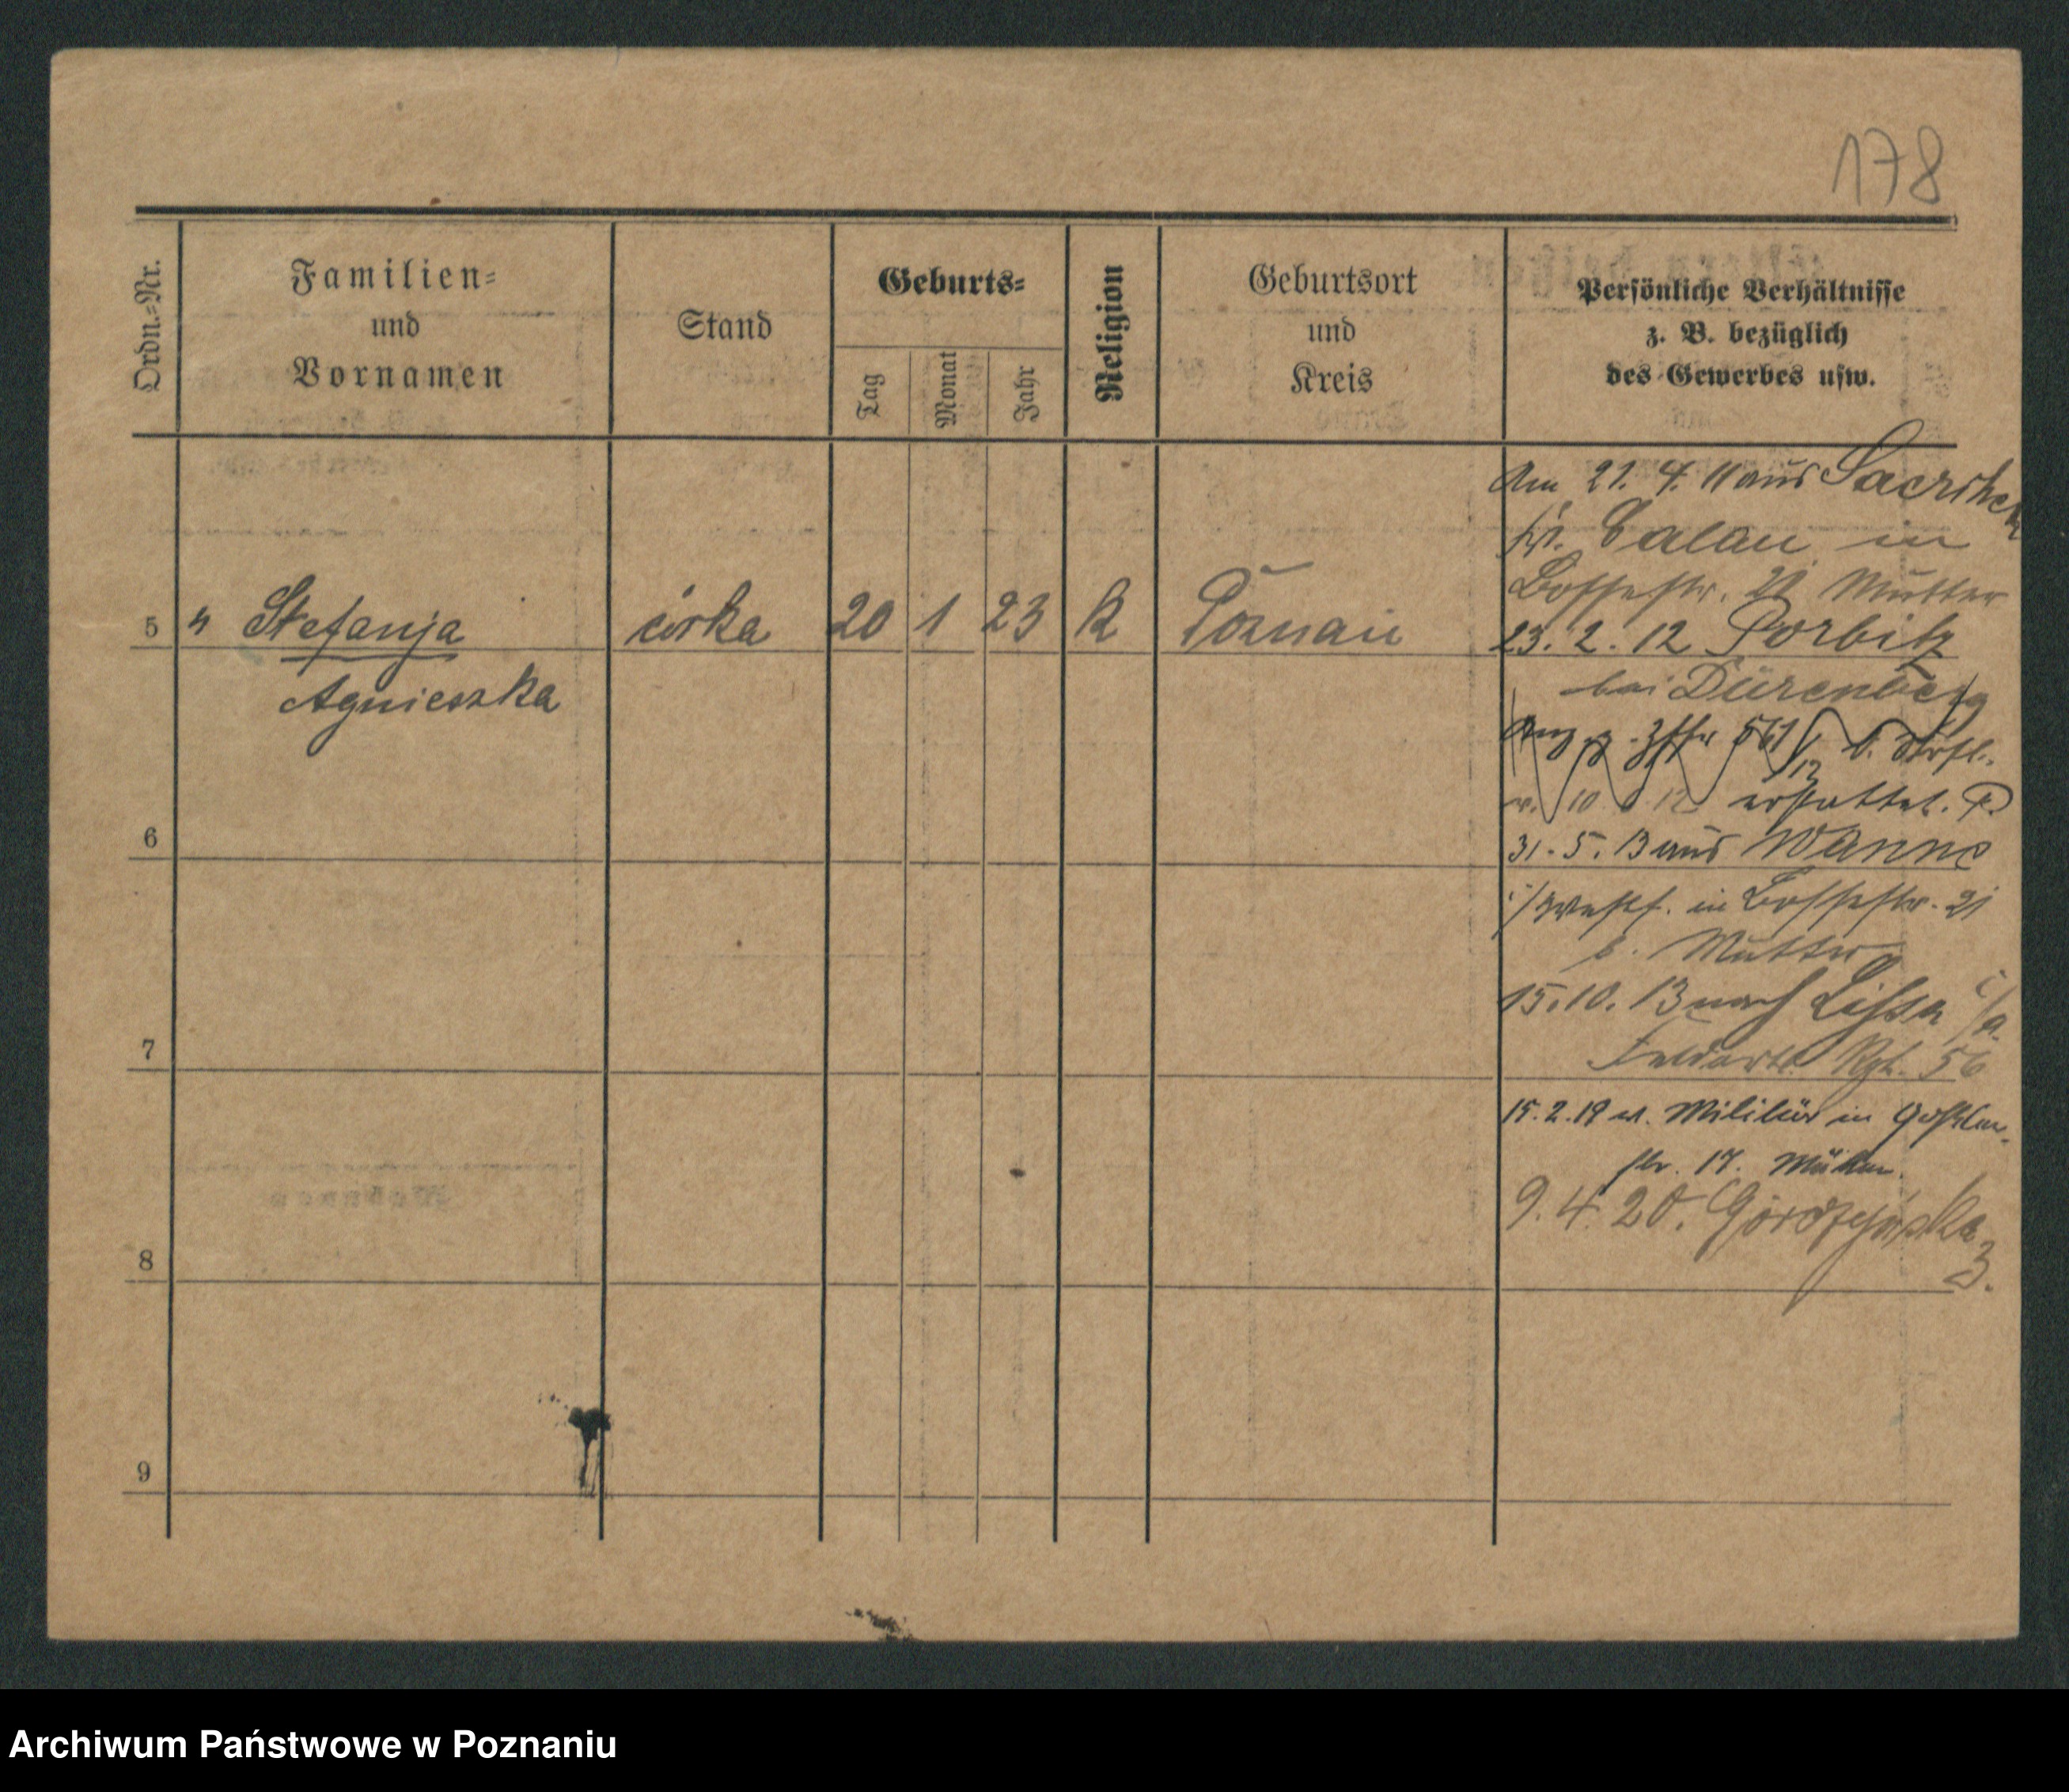 178
Ordn.-Nr.
Familien-
und
Vornamen
Stand
Geburts-
Tag
Monat
Jahr
Religion
Geburtsort
und
Kreis
Persönliche Verhältnisse
z. B. bezüglich
des Gewerbes usw.
5 " Stefanja córka 20 1 23 k Poznań
Agnieszka
6
7
8
9
Am 21. 4. 11 aus
Calau in
21 Mutter
23. 2. 12 Porbitz
bei Dürenberg
561
12
erstattet. P.
31. 5. 13 aus Wanne
i/Westf. in 21
b. Mutter
15. 10. 13 nach Lissa i/
Feldartl. Rgt. 56
15. 2. 19 v. Militär in
str. 17. Mutter.
9. 4. 20. Górczyńska
3.
Archiwum Państwowe w Poznaniu